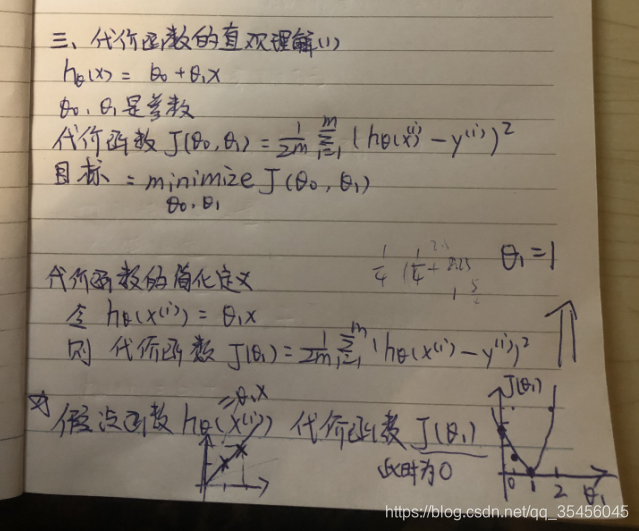 三、代价函数的直观理解(1)
hθ(x) = θ0 + θ1x
θ0, θ1是参数
代价函数 J(θ0, θ1) = 1/2m Σ_{i=1}^{m} (hθ(x^(i)) - y^(i))^2
目标 = minimize J(θ0, θ1)
θ0, θ1
θ1 = 1
代价函数的简化定义
令 hθ(x^(i)) = θ1x
则 代价函数 J(θ1) = 1/2m Σ_{i=1}^{m} (hθ(x^(i)) - y^(i))^2
=θ1x
J(θ1)
☆ 假设函数 hθ(x^(i)) 代价函数 J(θ1)
此时为0
0 1 2 θ1
https://blog.csdn.net/qq_35456045